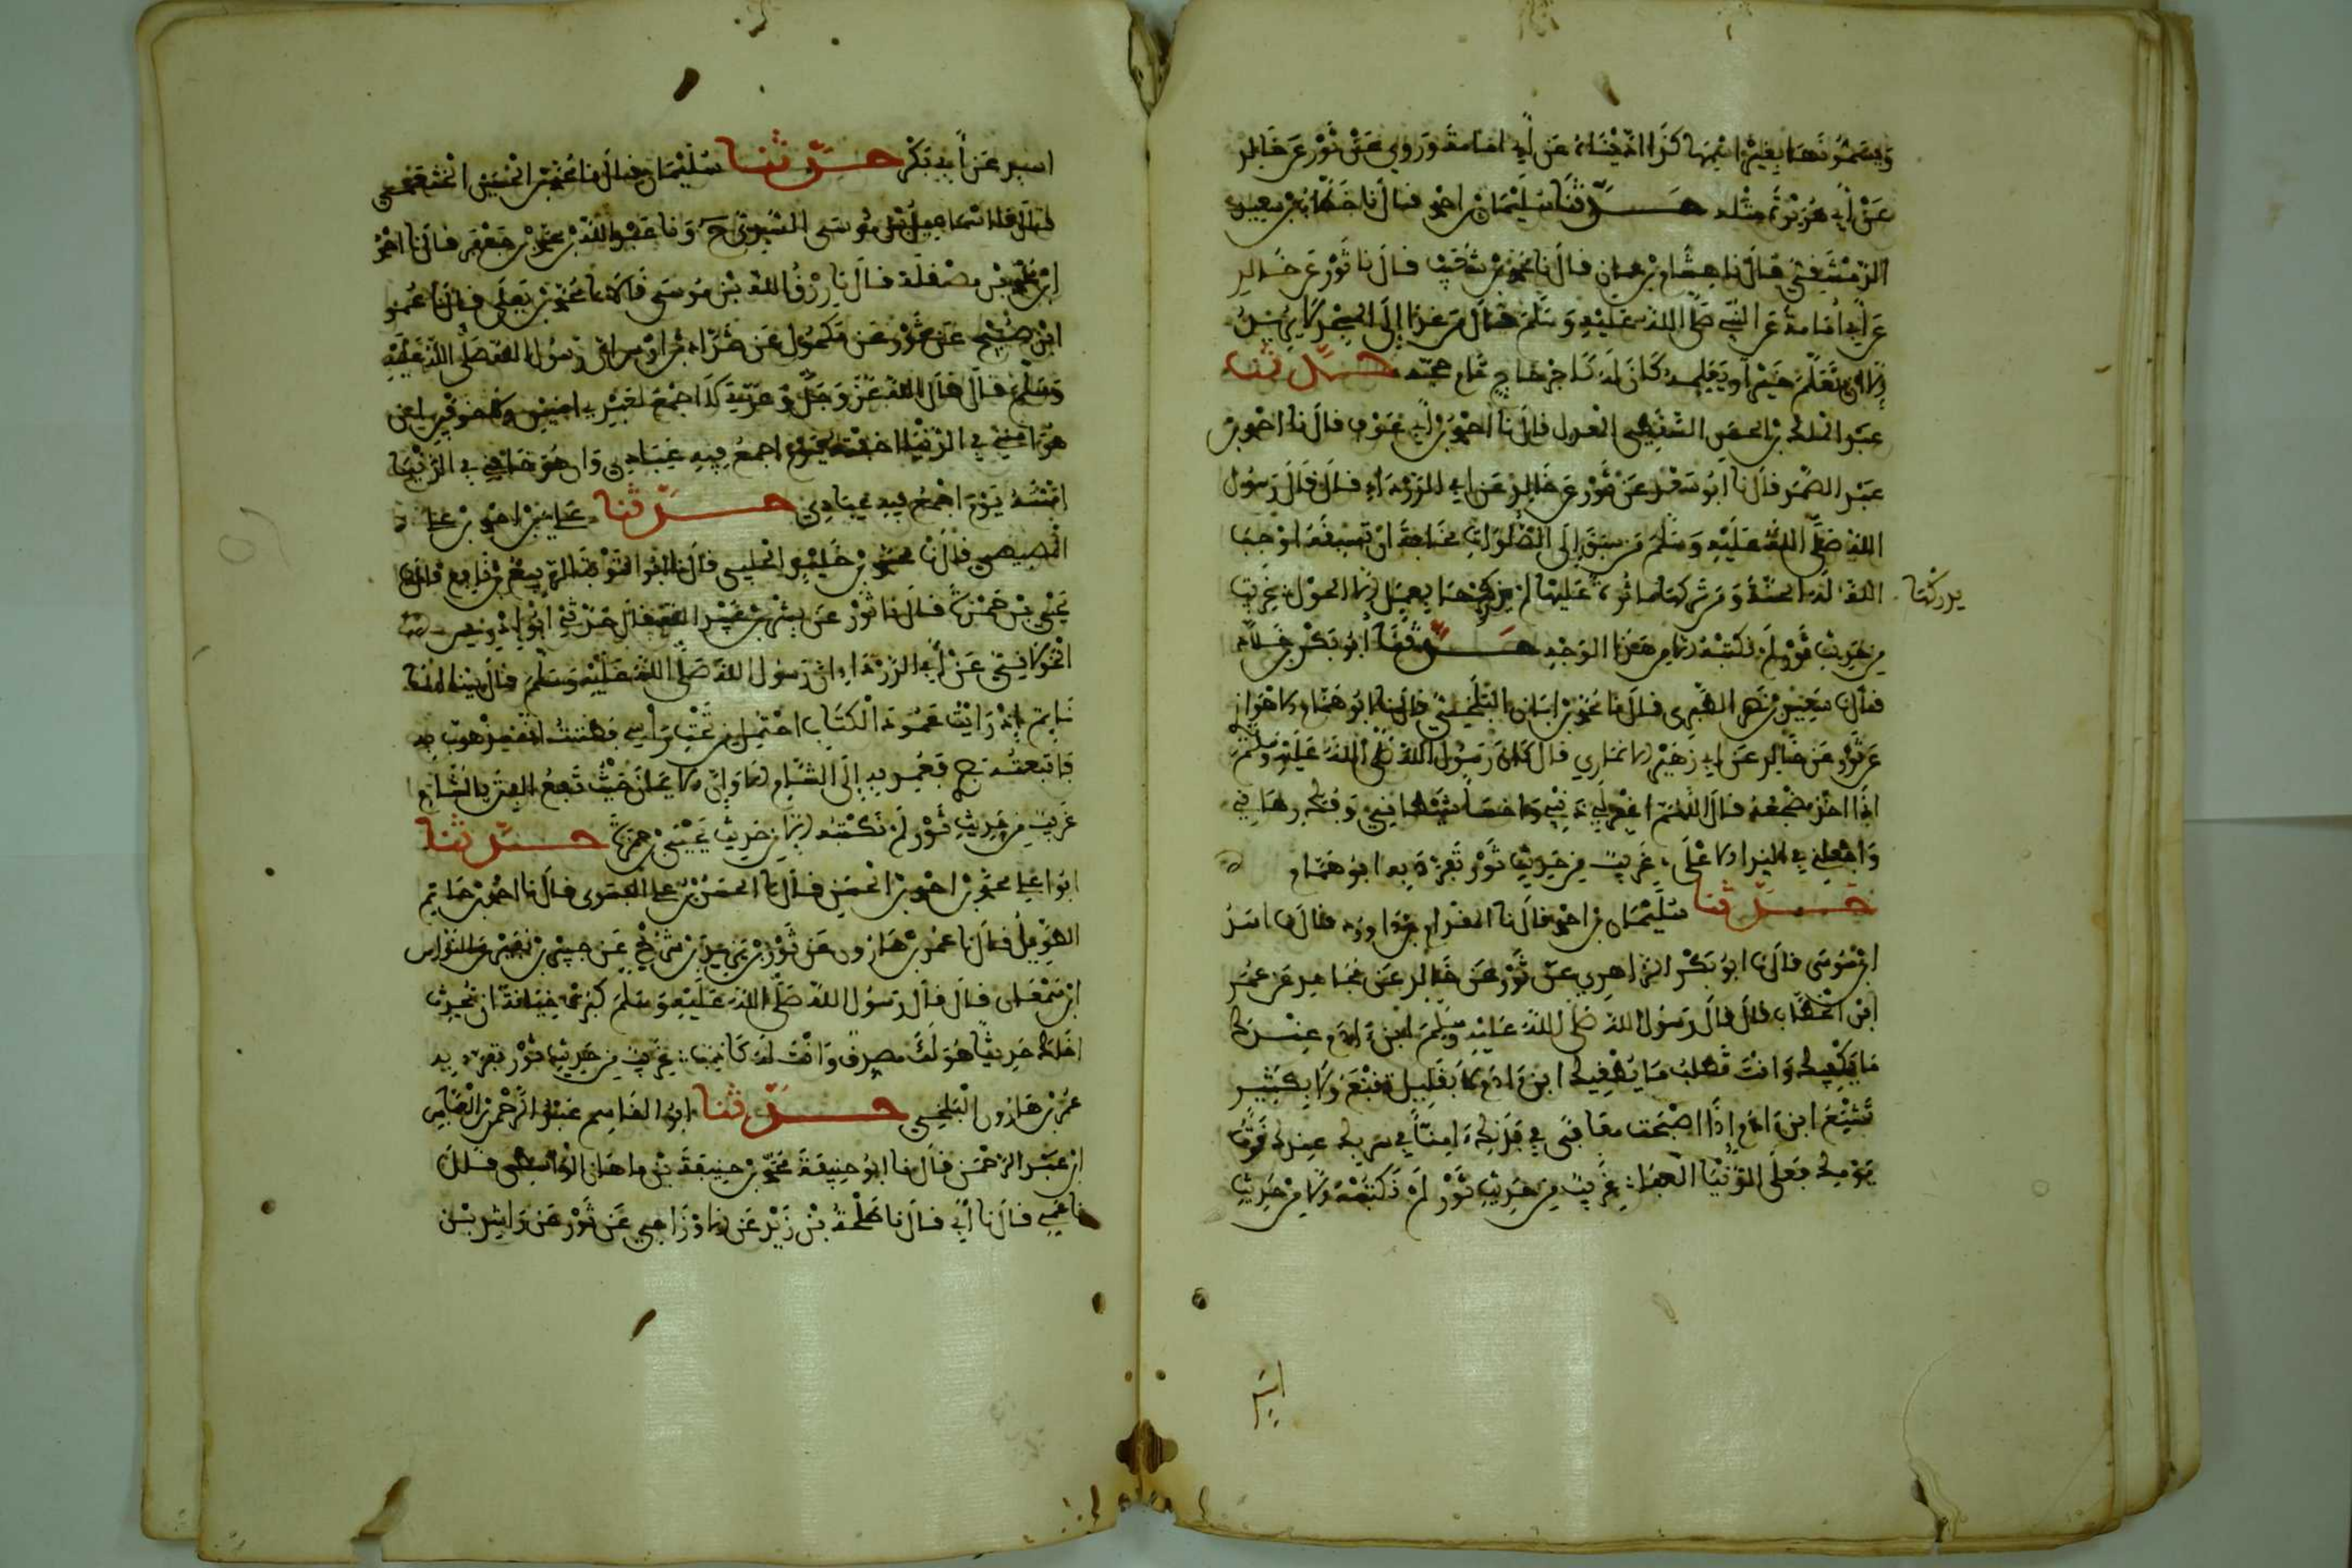 ويسمونها بغير اسمها كذا حدثناه عن أبي امامة وروي عن ثور عن خالد
عن أبي هريرة مثله حدثنا سليمان بن احمد قال نا خطاب بن سعيد
الدمشقي قال نا هشام بن عمار قال نا محمد بن شعيب قال نا ثور عن خالد
عن أبي امامة عن النبي صلى الله عليه وسلم قال من غدا إلى المسجد لا يريد
إلا ان يتعلم خيرا أو يعلمه كان له كأجر حاج تام حجه حدثنا
عبد الملك بن الحسن السقطي المعدل قال نا احمد بن أبي عوف قال نا احمد بن
عبد الصمد قال نا ابو سعد عن ثور عن خالد عن ابي الدرداء قال قال رسول
الله صلى الله عليه وسلم من سبق إلى الصلوات مخافة ان تسبقه اوجب
الله له الجنة ومن تركها ماثرة عليها لم يدركها بعمل إلا الحول غريب
يدركها
من حديث ثور لم نكتبه إلا من هذا الوجه حدثنا أبو بكر بن خلاد
قال نا سعيد بن نصر الطبري قال نا محمد بن ابان البلخي قال نا ابو همام الاهوازي
عن ثور عن خالد عن ابي زهير الانماري قال كان رسول الله صلى الله عليه وسلم
اذا اخذ مضجعه قال اللهم اغفر لي ذنبي واخسأ شيطاني وفك رهاني
واجعلني في الندا الاعلى غريب من حديث ثور تفرد به ابو همام
حدثنا سليمان بن احمد قال نا المقدام بن داود قال نا اسد
ابن موسى قال نا ابو بكر الداهري عن ثور عن خالد عن مجاهد عن عمر
ابن الخطاب قال قال رسول الله صلى الله عليه وسلم ابن ءادم عندك
ما يكفيك وانت تطلب ما يطغيك ابن ءادم لا بقليل تقنع ولا بكثير
تشبع ابن ءادم إذا اصبحت معافى في بدنك ءامنا في سربك عندك قوت
يومك فعلى الدنيا العفا غريب من حديث ثور لم نكتبه إلا من حديث
اسد
اسد عن أبي بكر حدثنا سليمان قال نا محمد بن الحسين الخثعمي
قال نا اسماعيل بن موسى السدي ح ونا عبد الله بن محمد بن جعفر قال نا احمد
ابن محمد بن مصقلة قال نا رزق الله بن موسى قالا نا محمد بن يعلى قال نا عمر
ابن صبيح عن ثور عن مكحول عن شداد بن اوس ان رسول الله صلى الله عليه
وسلم قال قال الله عز وجل وعزتي لا اجمع لعبدي امنين ولا خوفين ان
هو امنني في الدنيا اخفته يوم اجمع فيه عبادي وان هو خافني في الدنيا
امنته يوم اجمع فيه عبادي حدثنا علي بن احمد بن علي
المصيصي قال نا محمد بن خليد الحلبي قال نا ابو التوبة الربيع بن نافع قال نا
يحيى بن حمزة قال نا ثور عن بسر بن عبيد الله قال حدثني ابو ادريس
الخولاني عن أبي الدرداء ان رسول الله صلى الله عليه وسلم قال بينا انا
نايم إذ رايت عمود الكتاب احتمل من تحت راسي فظننت انه مذهوب به
فاتبعته بصري فعمد به إلى الشام الا وان الايمان حيث تقع الفتن بالشام
غريب من حديث ثور لم نكتبه إلا من حديث يحيى بن حمزة حدثنا
ابو علي محمد بن احمد بن الحسن قال نا الحسن بن علي المعمري قال نا احمد بن حاتم
الطويل قال نا عمر بن هارون عن ثور بن يزيد عن شريح عن جبير بن نفير عن النواس
ابن سمعان قال قال رسول الله صلى الله عليه وسلم كبرت خيانة ان تحدث
اخاك حديثا هو لك مصدق وانت له كاذب غريب من حديث ثور تفرد به
عمر بن هارون البلخي حدثنا ابو القاسم عبد الرحمن بن العباس
ابن عبد الرحمن قال نا ابو حنيفة محمد بن حنيفة بن ماهان الواسطي قال
نا عمي قال نا أبي قال نا طلحة بن زيد عن الاوزاعي عن ثور عن راشد بن